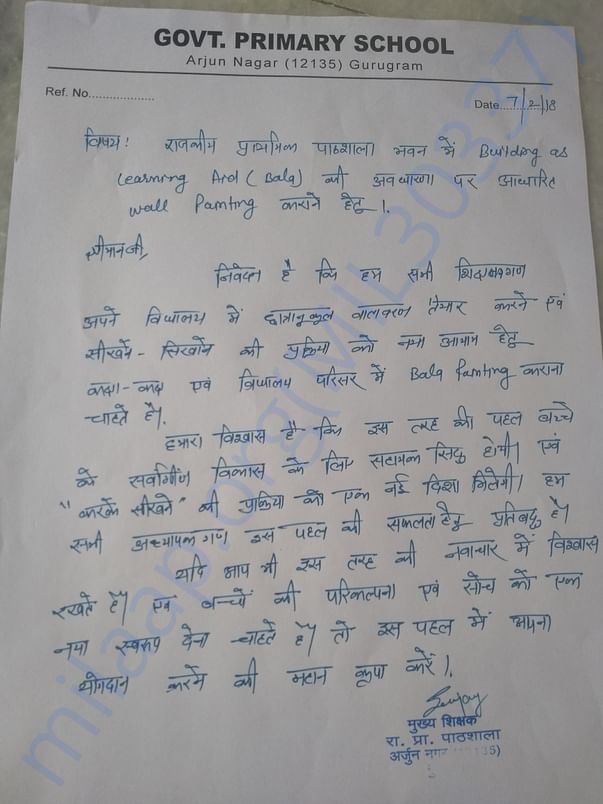 GOVT. PRIMARY SCHOOL
Arjun Nagar (12135) Gurugram
Ref. No...................
Date 7/2/18
विषय: राजकीय प्राथमिक पाठशाला भवन में Building as
Learning Aid (Bala) की अवधारणा पर आधारित
Wall Painting कराने हेतु।
श्रीमानजी,
निवेदन है कि हम सभी शिक्षकगण
अपने विद्यालय में छात्रानुकूल वातावरण तैयार करने एवं
सीखने-सिखाने की प्रक्रिया को नया आयाम हेतु
कक्षा-कक्ष एवं विद्यालय परिसर में Bala Painting कराना
चाहते हैं।
हमारा विश्वास है कि इस तरह की पहल बच्चे
के सर्वांगीण विकास के लिए सहायक सिद्ध होगी। एवं
"करके सीखने" की प्रक्रिया को एक नई दिशा मिलेगी। हम
सभी अध्यापकगण इस पहल की सफलता हेतु प्रतिबद्ध हैं।
यदि आप भी इस तरह की नवाचार में विश्वास
रखते हैं। एवं बच्चों की परिकल्पना एवं सोच को एक
नया स्वरूप देना चाहते हैं। तो इस पहल में अपना
योगदान करने की महान कृपा करें।
Sanjay
मुख्य शिक्षक
रा. प्रा. पाठशाला
अर्जुन नगर
milaap.org(MIL30337)